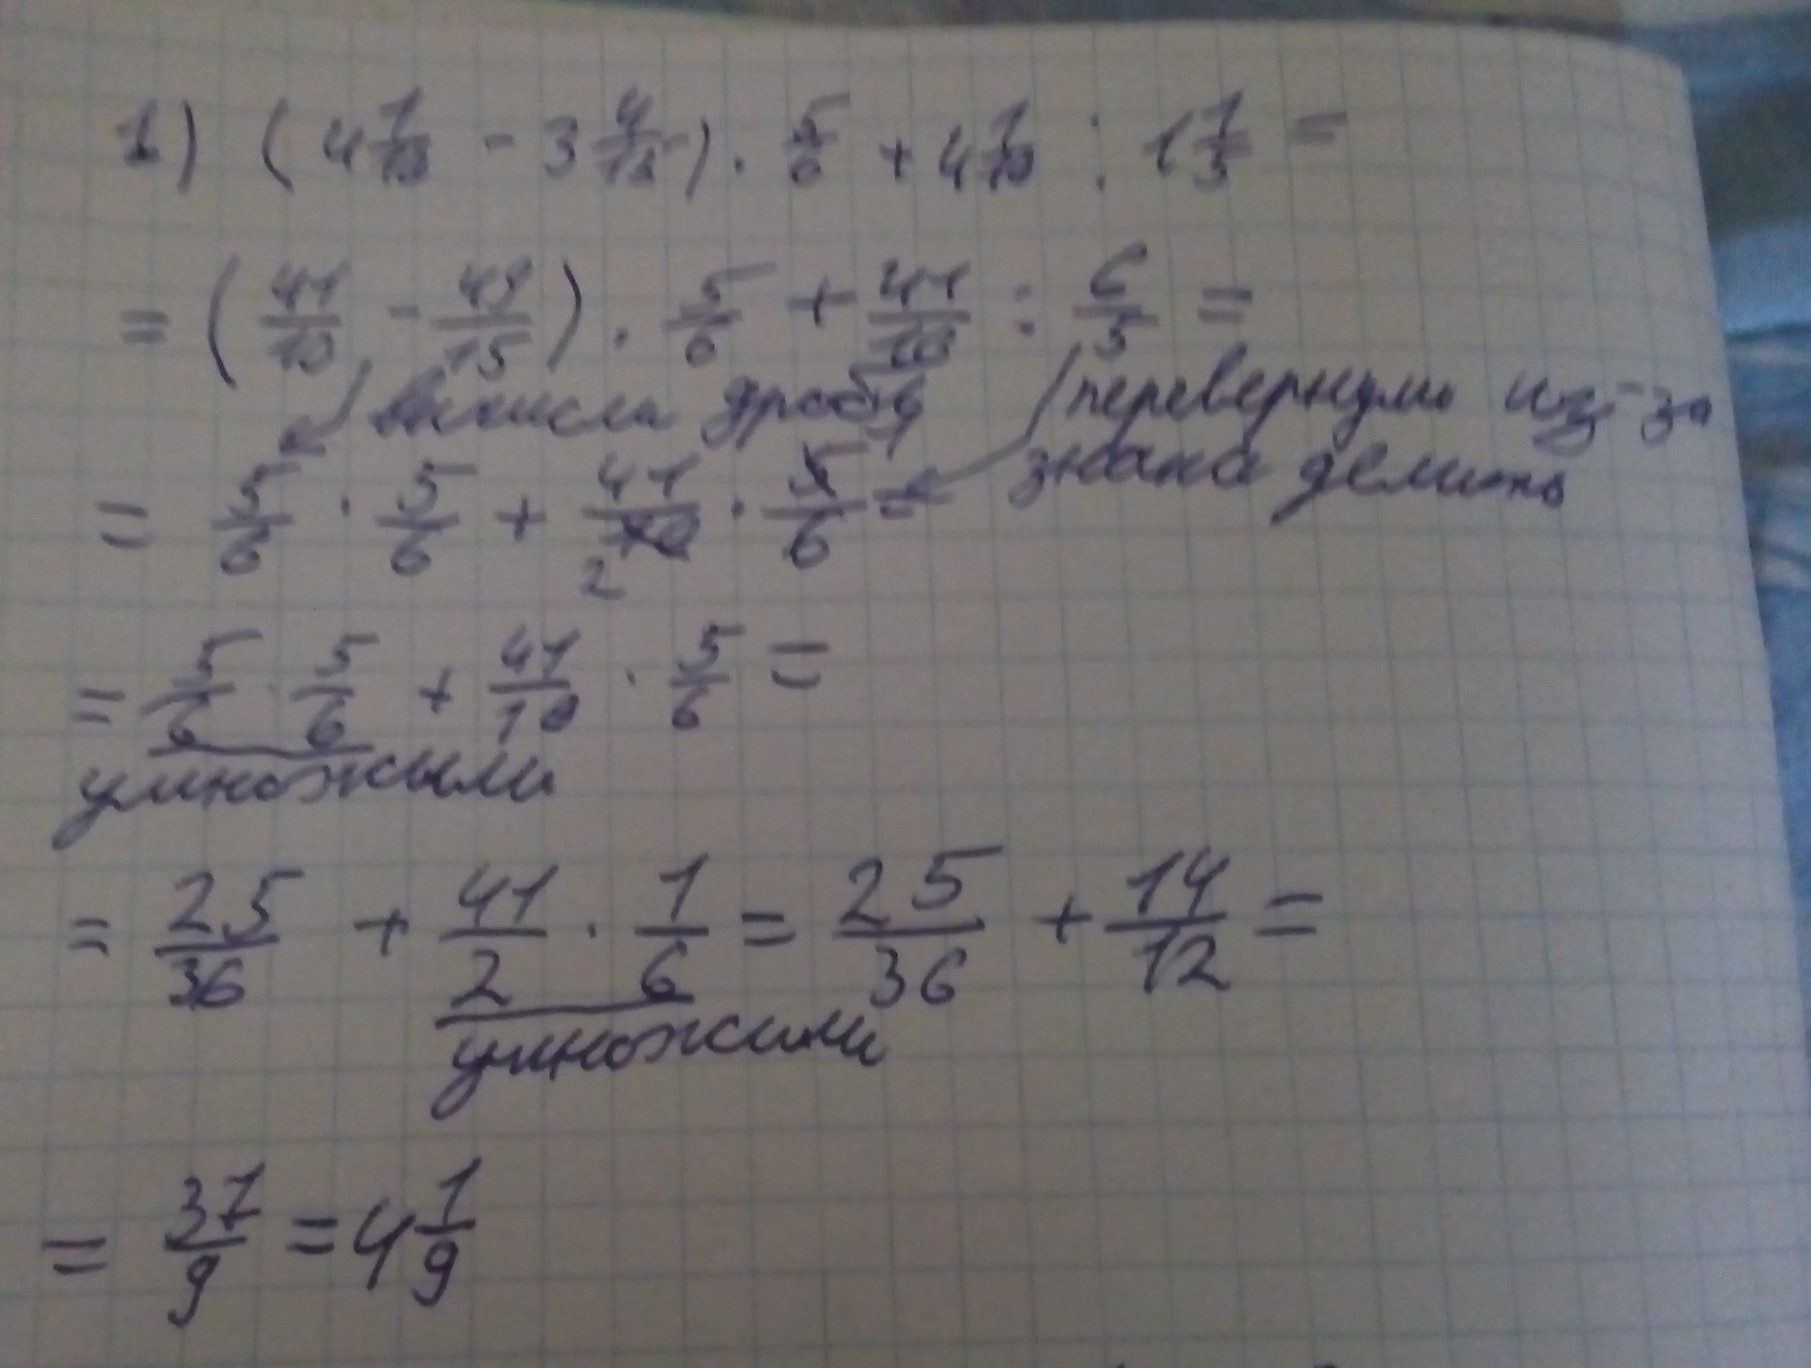 1) (4 1/10 - 3 4/15) · 5/6 + 4 1/10 : 1 1/5 =
= (41/10 - 49/15) · 5/6 + 41/10 : 6/5 =
дробь перевернули из-за
знака делить
= 5/6 · 5/6 + 41/10 · 5/6 =
2
= 5/6 · 5/6 + 41/10 · 5/6 =
умножыли
= 25/36 + 41/2 · 1/6 = 25/36 + 14/12 =
умножили
= 37/9 = 4 1/9